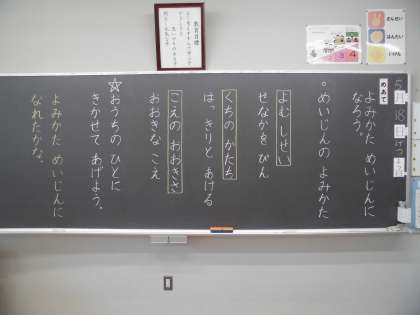 5
月
18
日
げつ
よう
めあて
よみかた めいじんに
なろう。
○めいじんの よみかた
よむ しせい
せなかを ぴん
くちの かたち
はっきりと あける
こえの おおきさ
おおきな こえ
☆おうちの ひとに
きかせて あげよう。
よみかた めいじんに
なれたかな。
教育目標
さんせい
はんたい
しつもん